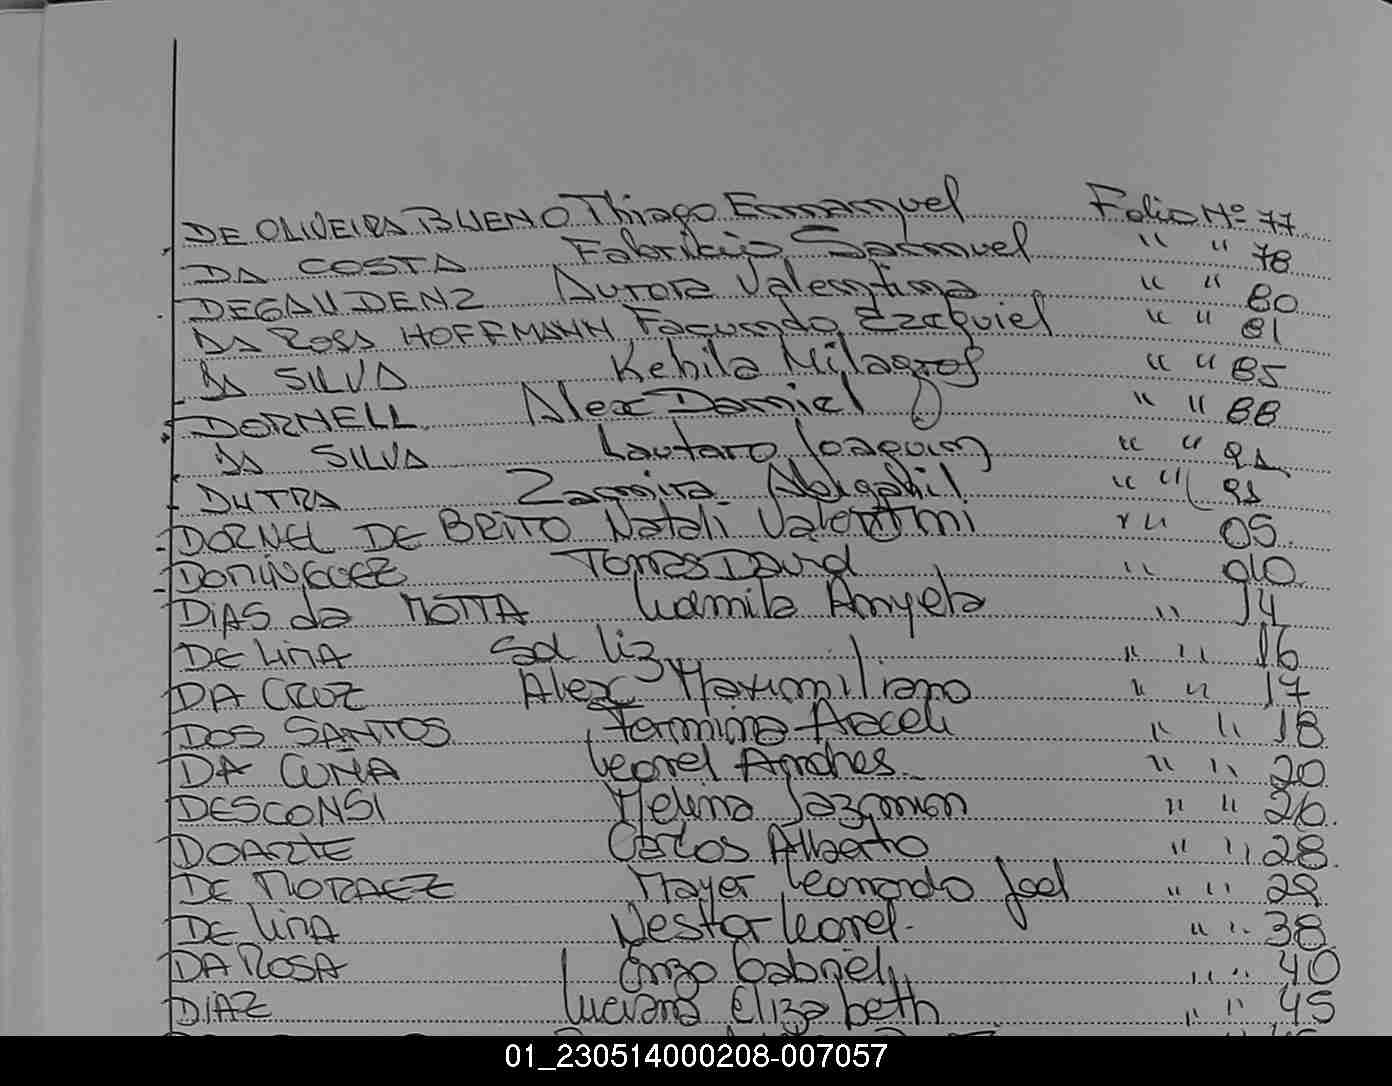 DE OLIVEIRA BUENO Thiago Emmanuel Folio Nº 77
DA COSTA Fabrikio Samuel " " 78
DEGAUDENZ Aurora Valentina " " 80
DA ROSA HOFFMANN Facundo Ezequiel " " 81
DA SILVA Kehila Milagros " " 85
DORNELL Alex Daniel " " 88
DA SILVA Lautaro Joaquin " "
DUTRA Zamira Abigahil " "
DORNEL DE BRITO Natali Valentini " " 05
DOMINGUEZ Tomas David " 010
DIAS da MOTTA Ludmila Anyela " 14
DE LIMA Sol Liz " " 16
DA CRUZ Alex Maximiliano " " 17
DOS SANTOS Fermina Araceli " " 18
DA CUÑA Leonel Andhes " " 20
DESCONSI Melina Jazmin " " 26
DOARTE Carlos Alberto " " 28
DE MORAEZ Mayer Leonardo Joel " " 29
DE LIMA Nestor Leonel " " 38
DA ROSA Enzo Gabriel " " 40
DIAZ Luciana Elizabeth " " 45
01_230514000208-007057